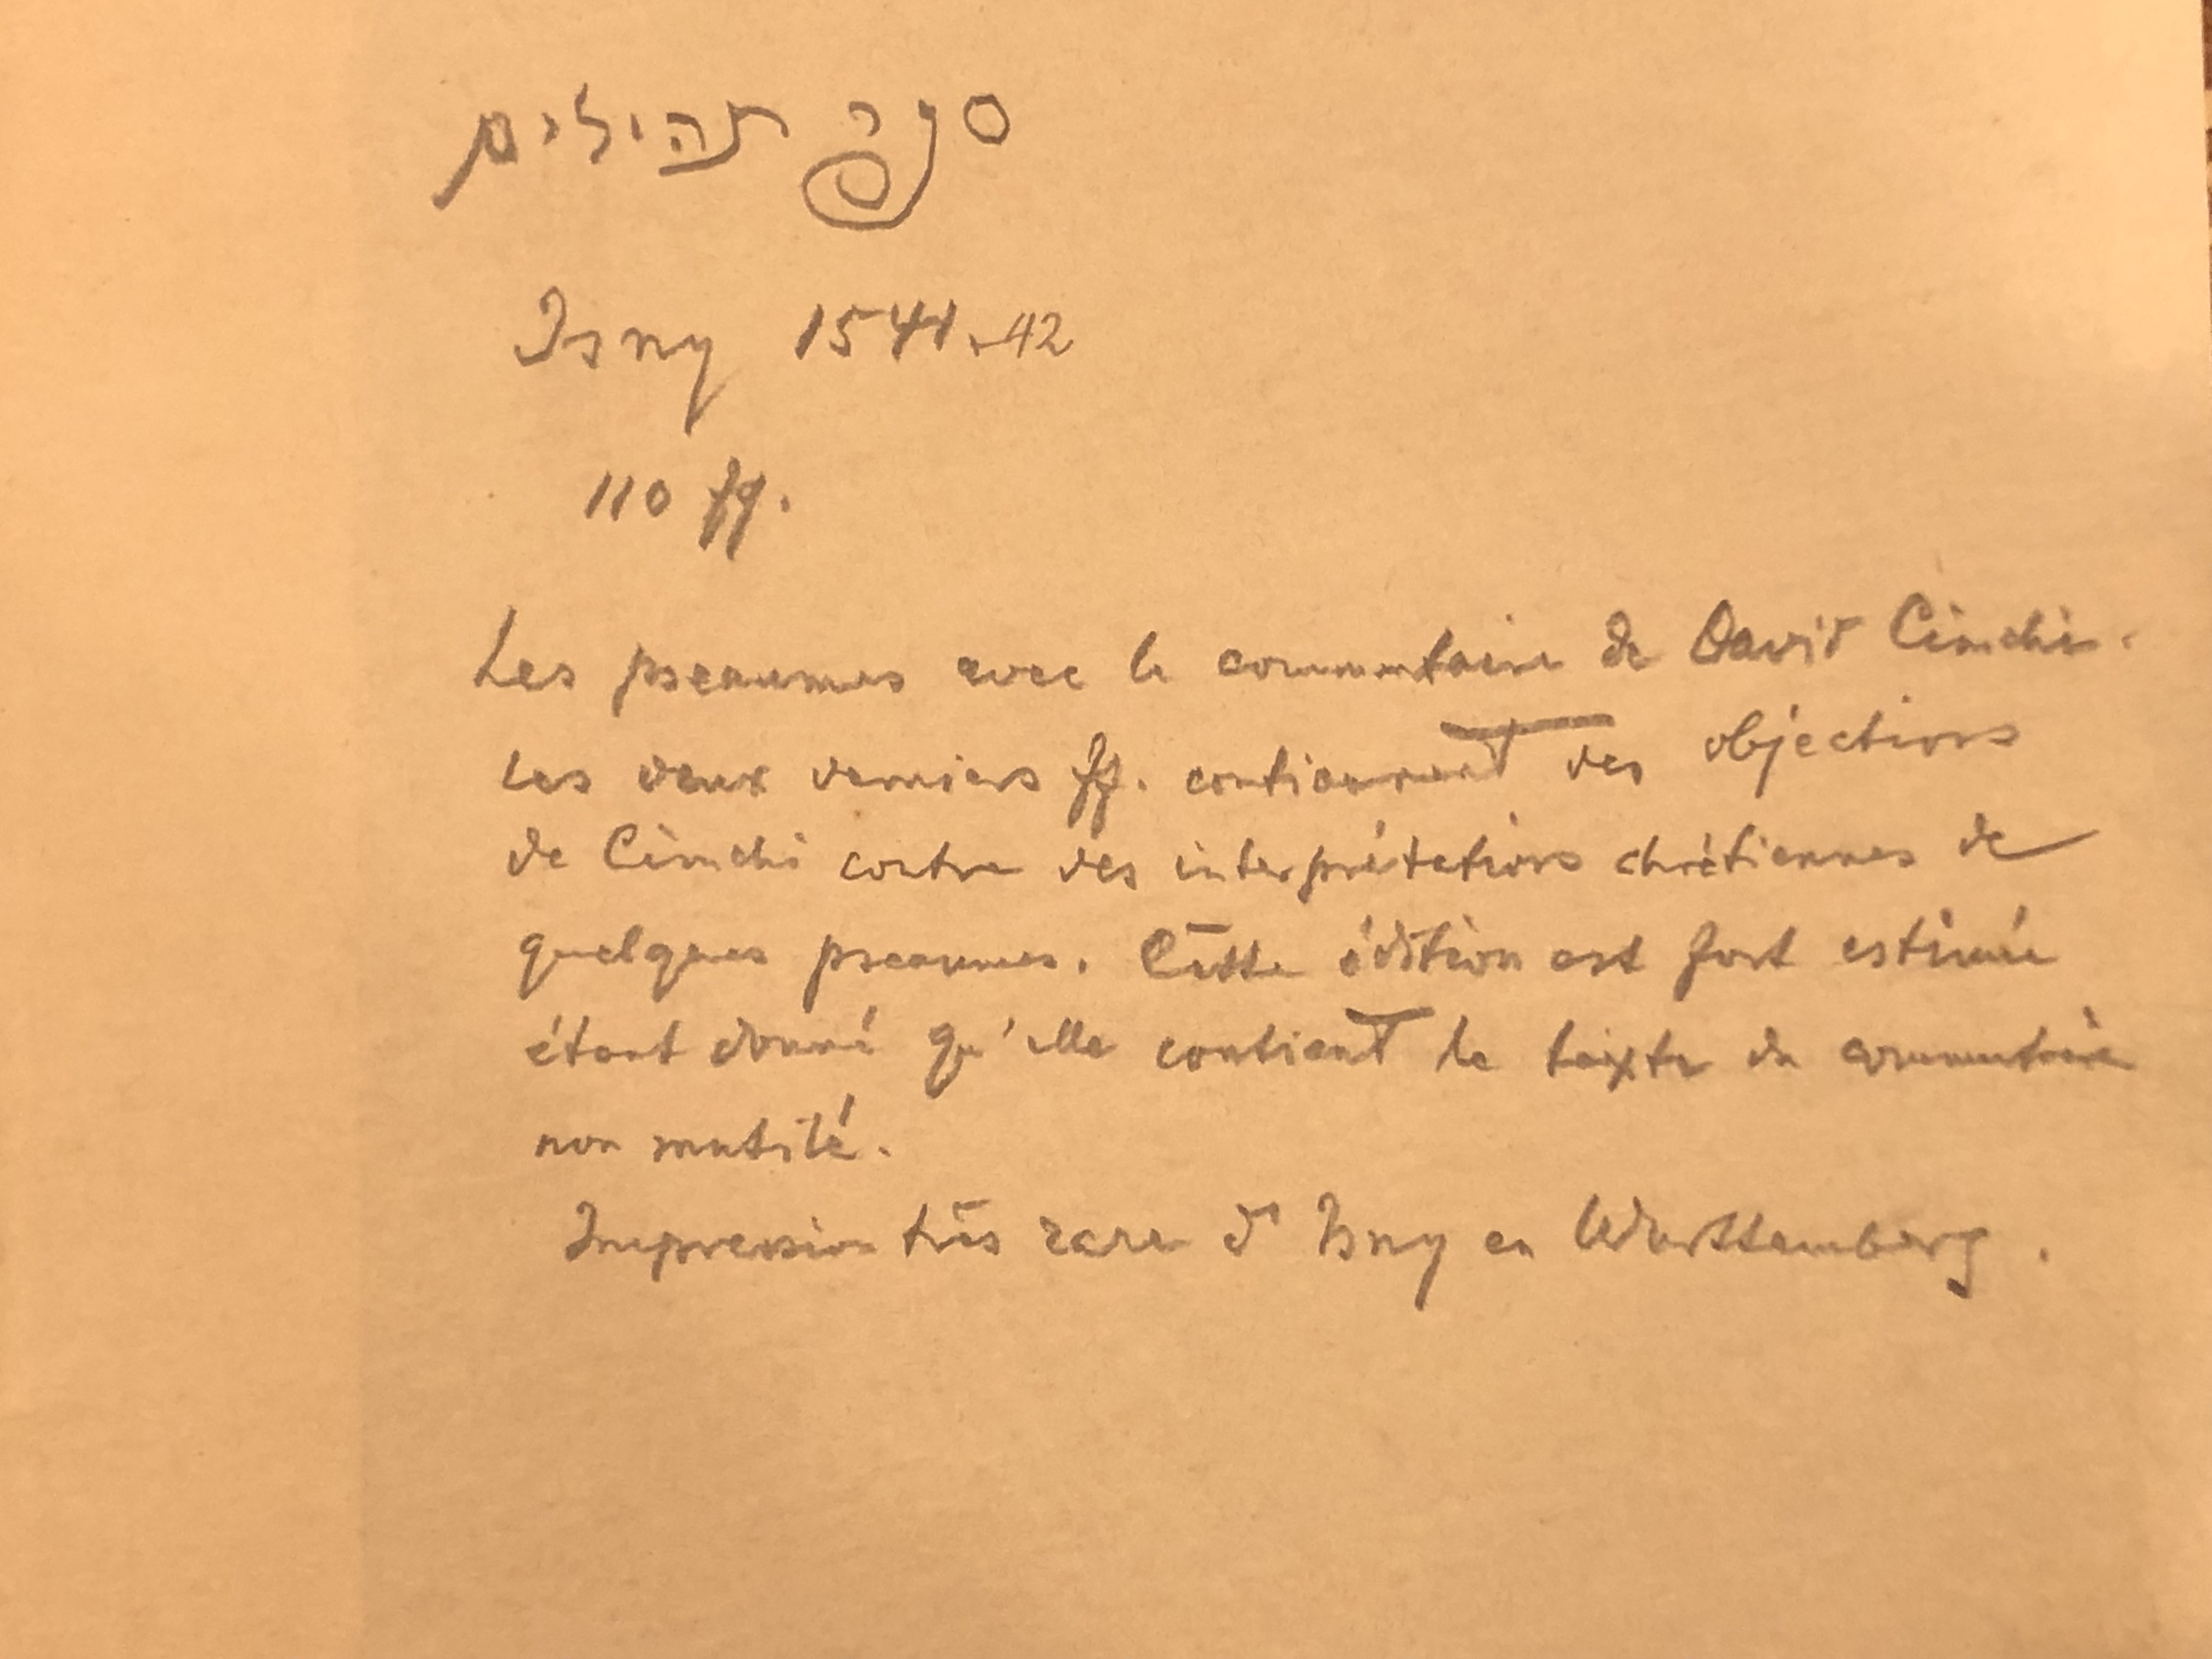 ספר תהילים
Isny 1541-42
110 ff.
Les pseaumes avec le commentaire de David Cimchi.
Les deux derniers ff. contiennent des objections
de Cimchi contre des interprétations chrétiennes de
quelques pseaumes. Cette édition est fort estimée
étant donné qu'elle contient le texte du commentaire
non mutilé.
Impression très rare d'Isny en Wurttemberg.